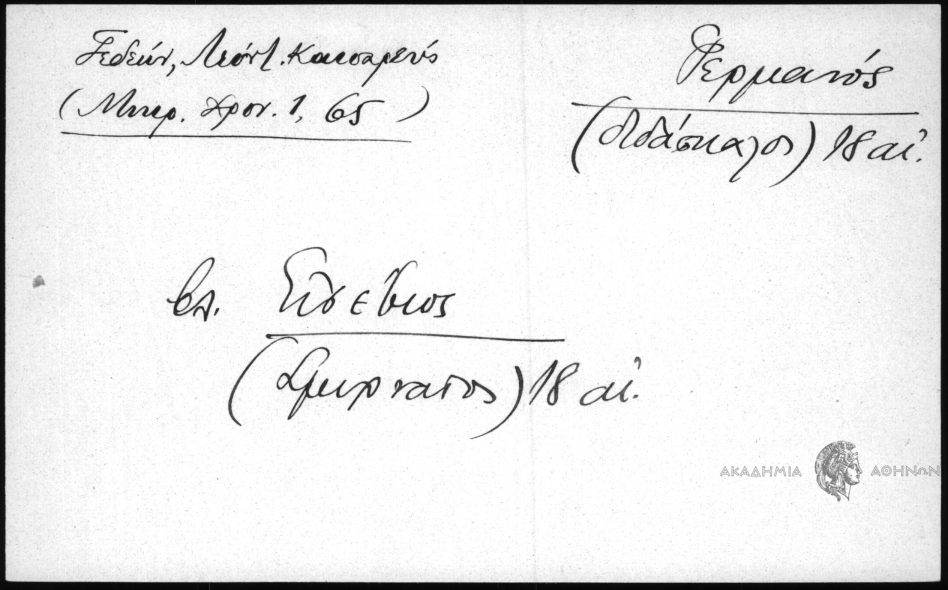 Γεδεών, Λεόντ. Καισαρεύς
(Μικρ. Χρον. 1, 65)
Γερμανός
(διδάσκαλος) 18 αἰ.
βλ. Εὐσέβιος
(Σμυρναῖος) 18 αἰ.
ΑΚΑΔΗΜΙΑ ΑΘΗΝΩΝ